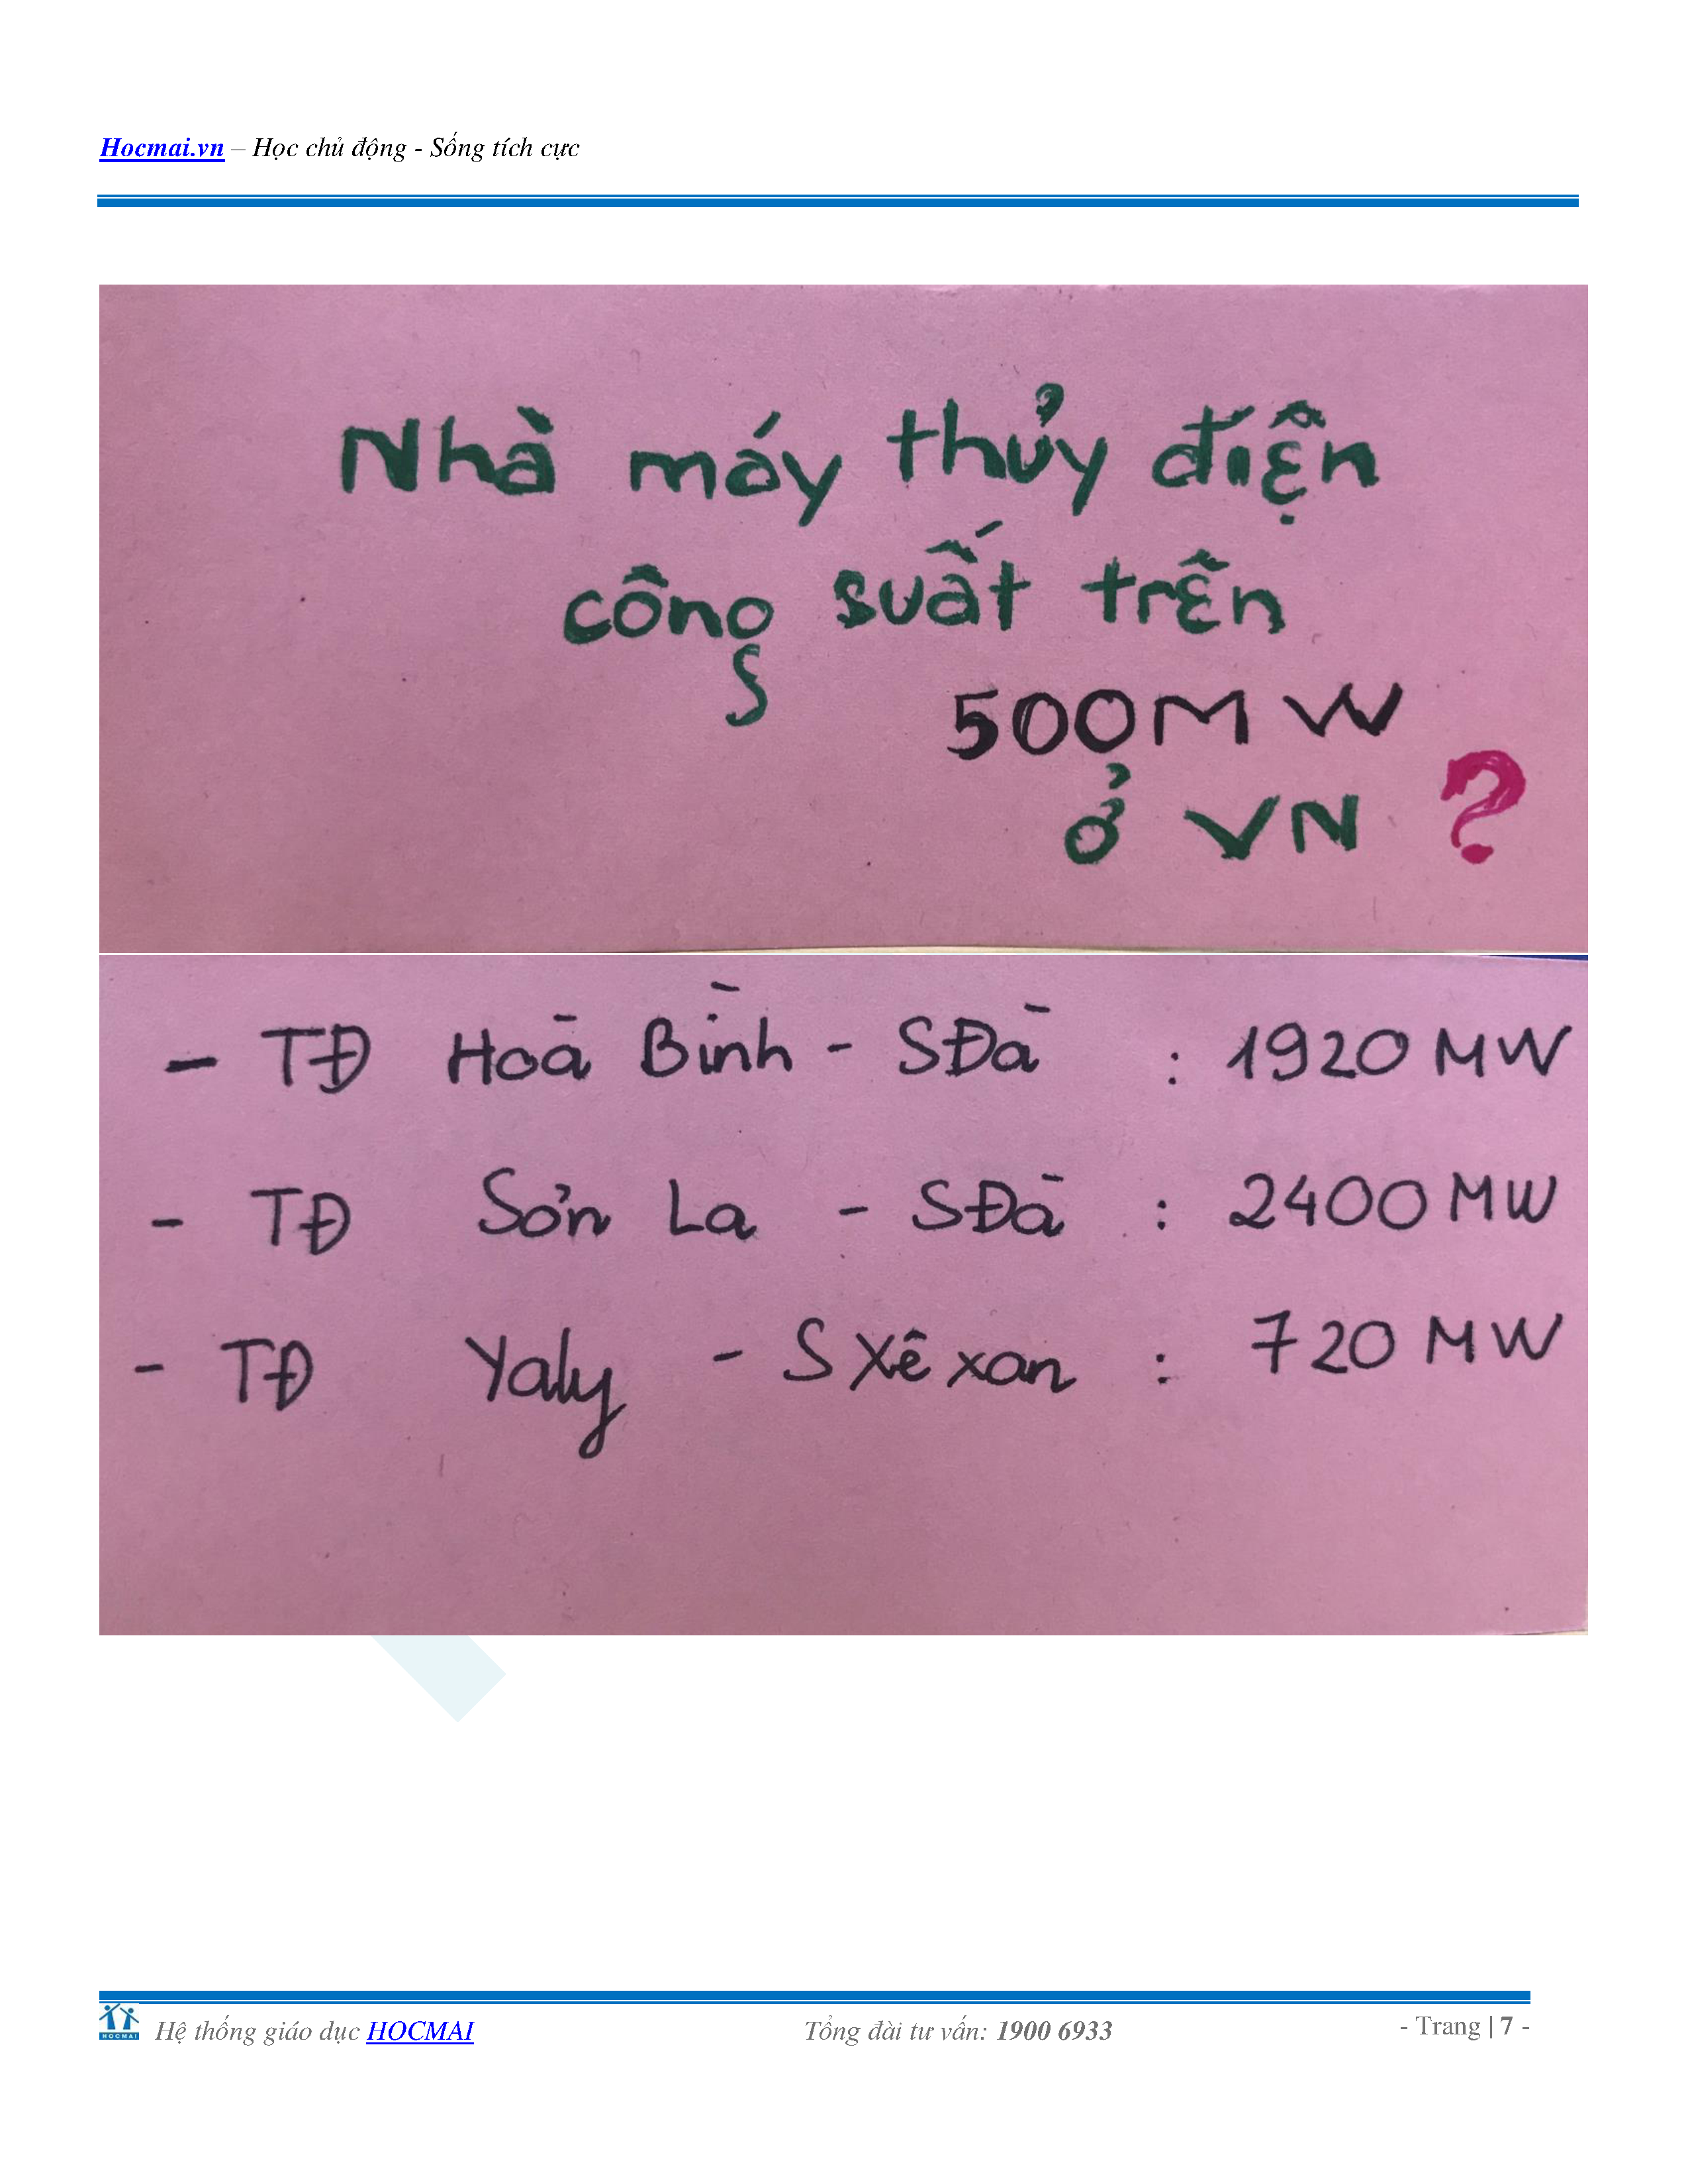 Hocmai.vn – Học chủ động - Sống tích cực
Nhà máy thủy điện
công suất trên
500MW
ở VN ?
- TĐ Hoà Bình - SĐà : 1920 MW
- TĐ Sơn La - SĐà : 2400 MW
- TĐ Yaly - S Xê xan : 720 MW
HOCMAI
Hệ thống giáo dục HOCMAI
Tổng đài tư vấn: 1900 6933
- Trang | 7 -